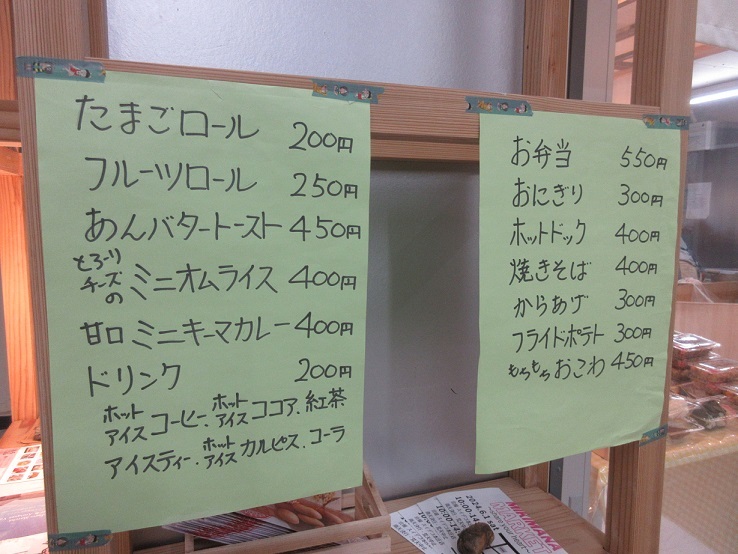 たまごロール 200円
フルーツロール 250円
あんバタートースト 450円
とろ〜り
チーズ
の ミニオムライス 400円
甘口 ミニキーマカレー 400円
ドリンク 200円
ホット
アイス コーヒー、ホット
アイス ココア、紅茶
アイスティー、ホット
アイス カルピス、コーラ
お弁当 550円
おにぎり 300円
ホットドック 400円
焼きそば 400円
からあげ 300円
フライドポテト 300円
もちもち おこわ 450円
2024.6.1 sat